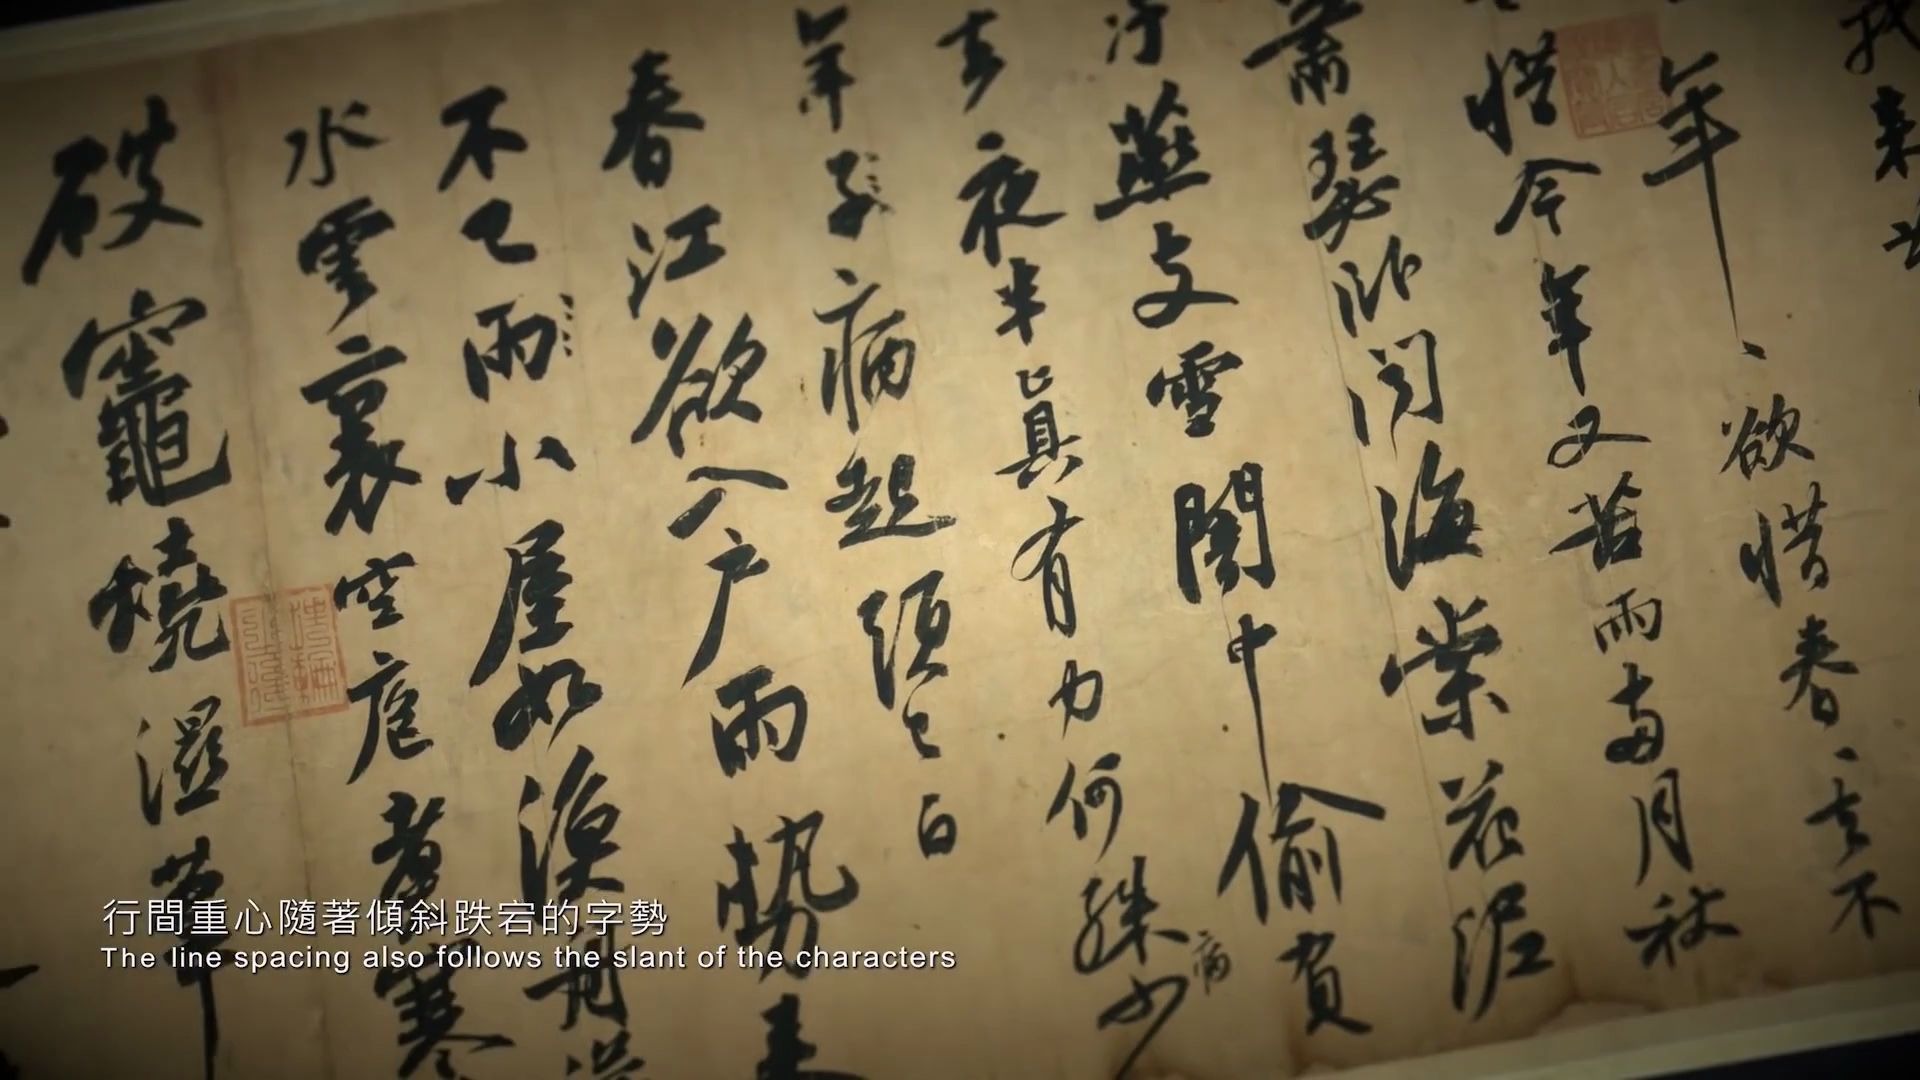 我来
年、欲惜春、去不
惜今年又苦雨兩月秋
蕭瑟臥聞海棠花泥
汙燕支雪闇中偷負
去夜半真有力何殊少病
年子病起須已白
春江欲入戶雨勢來
不已雨小屋如漁舟濛
水雲裏空庖煮寒
破竈燒濕葦
行間重心隨著傾斜跌宕的字勢
The line spacing also follows the slant of the characters